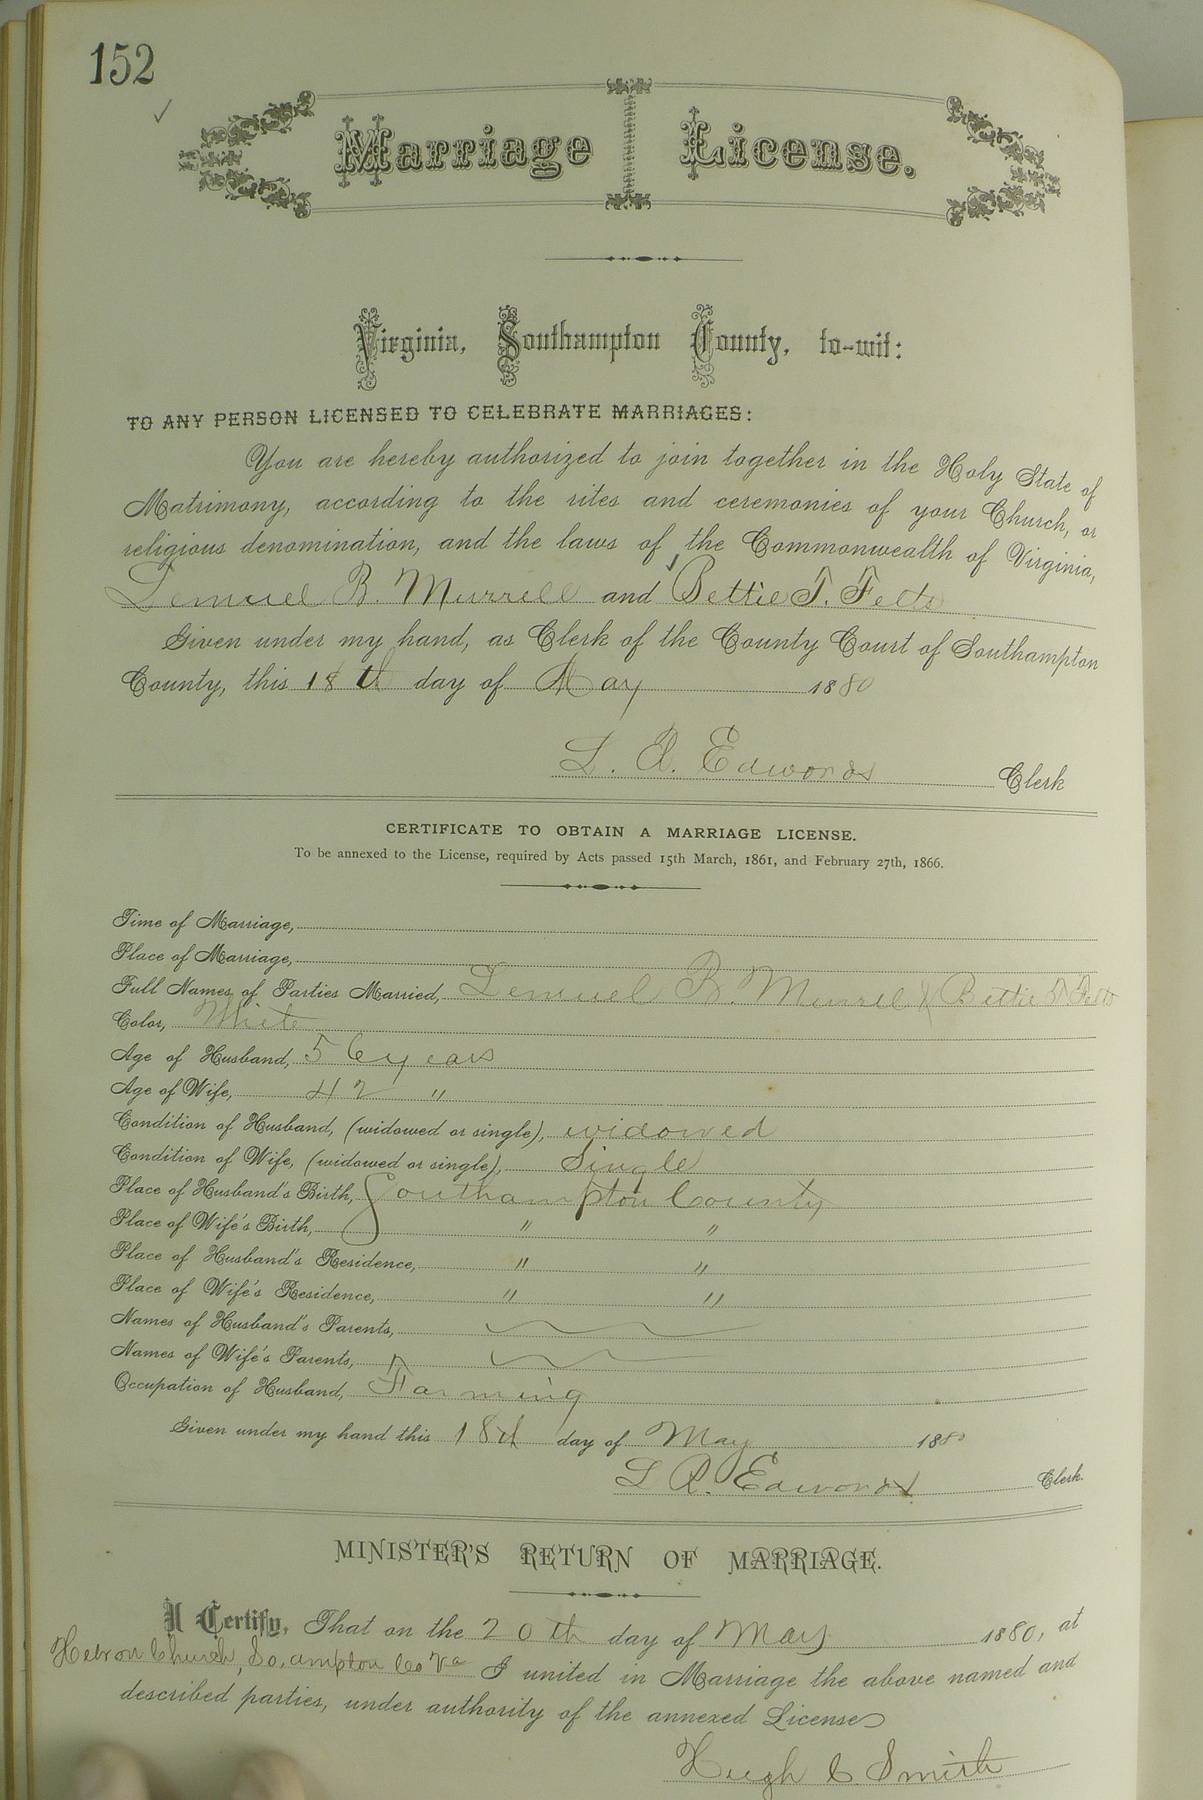 152
Marriage License.
Virginia, Southampton County, to-wit:
TO ANY PERSON LICENSED TO CELEBRATE MARRIAGES:
You are hereby authorized to join together in the Holy State of
Matrimony, according to the rites and ceremonies of your Church, or
religious denomination, and the laws of the Commonwealth of Virginia,
Lemuel B. Murrell and Bettie T. Felts
Given under my hand, as Clerk of the County Court of Southampton
County, this 18th day of May 1880
L. R. Edwards Clerk
CERTIFICATE TO OBTAIN A MARRIAGE LICENSE.
To be annexed to the License, required by Acts passed 15th March, 1861, and February 27th, 1866.
Time of Marriage,
Place of Marriage,
Full Names of Parties Married, Lemuel B. Murrel & Bettie T. Felts
Color, White
Age of Husband, 56 years
Age of Wife, 42 "
Condition of Husband, (widowed or single), widowed
Condition of Wife, (widowed or single), Single
Place of Husband's Birth, Southampton County
Place of Wife's Birth, " "
Place of Husband's Residence, " "
Place of Wife's Residence, " "
Names of Husband's Parents,
Names of Wife's Parents,
Occupation of Husband, Farming
Given under my hand this 18th day of May 1880
L R. Edwards Clerk.
MINISTER'S RETURN OF MARRIAGE.
I Certify, That on the 20th day of May 1880, at
Hebron Church, So.ampton Co Va I united in Marriage the above named and
described parties, under authority of the annexed License
Hugh C. Smith